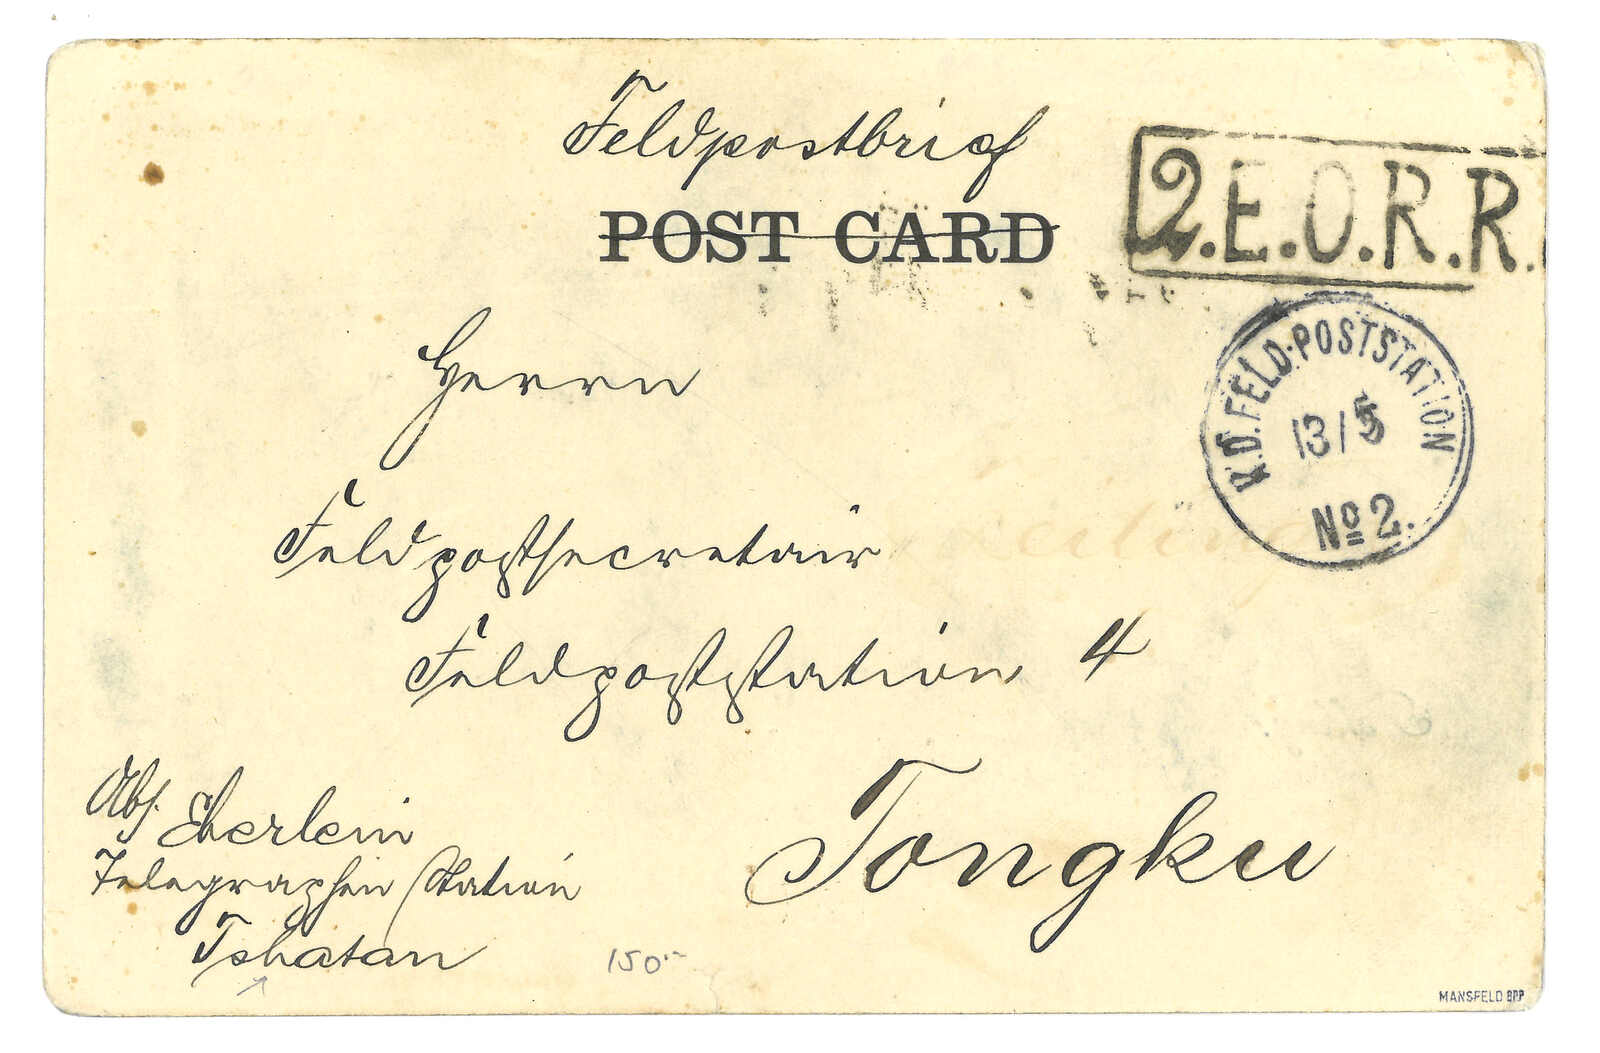 Feldpostbrief
POST CARD
2.E.O.R.R.
K.D.FELD-POSTSTATION
13/5
No 2.
Herrn
Feldpostsecretair
Feldpoststation 4
Tongku
Abs. Eberlein
Telegraphen Station
Tshatan
150.-
MANSFELD BPP